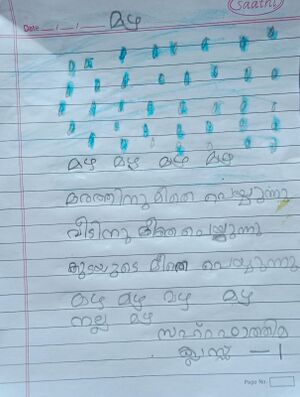 saathi
Date __/__/__
മഴ
മഴ മഴ മഴ മഴ
മരത്തിനു മീതെ പെയ്യുന്നു
വീടിനു മീതെ പെയ്യുന്നു
കുടയുടെ മീതെ പെയ്യുന്നു
മഴ മഴ മഴ മഴ
നല്ല മഴ
ക്ലാസ്സ് - 1
Page No.